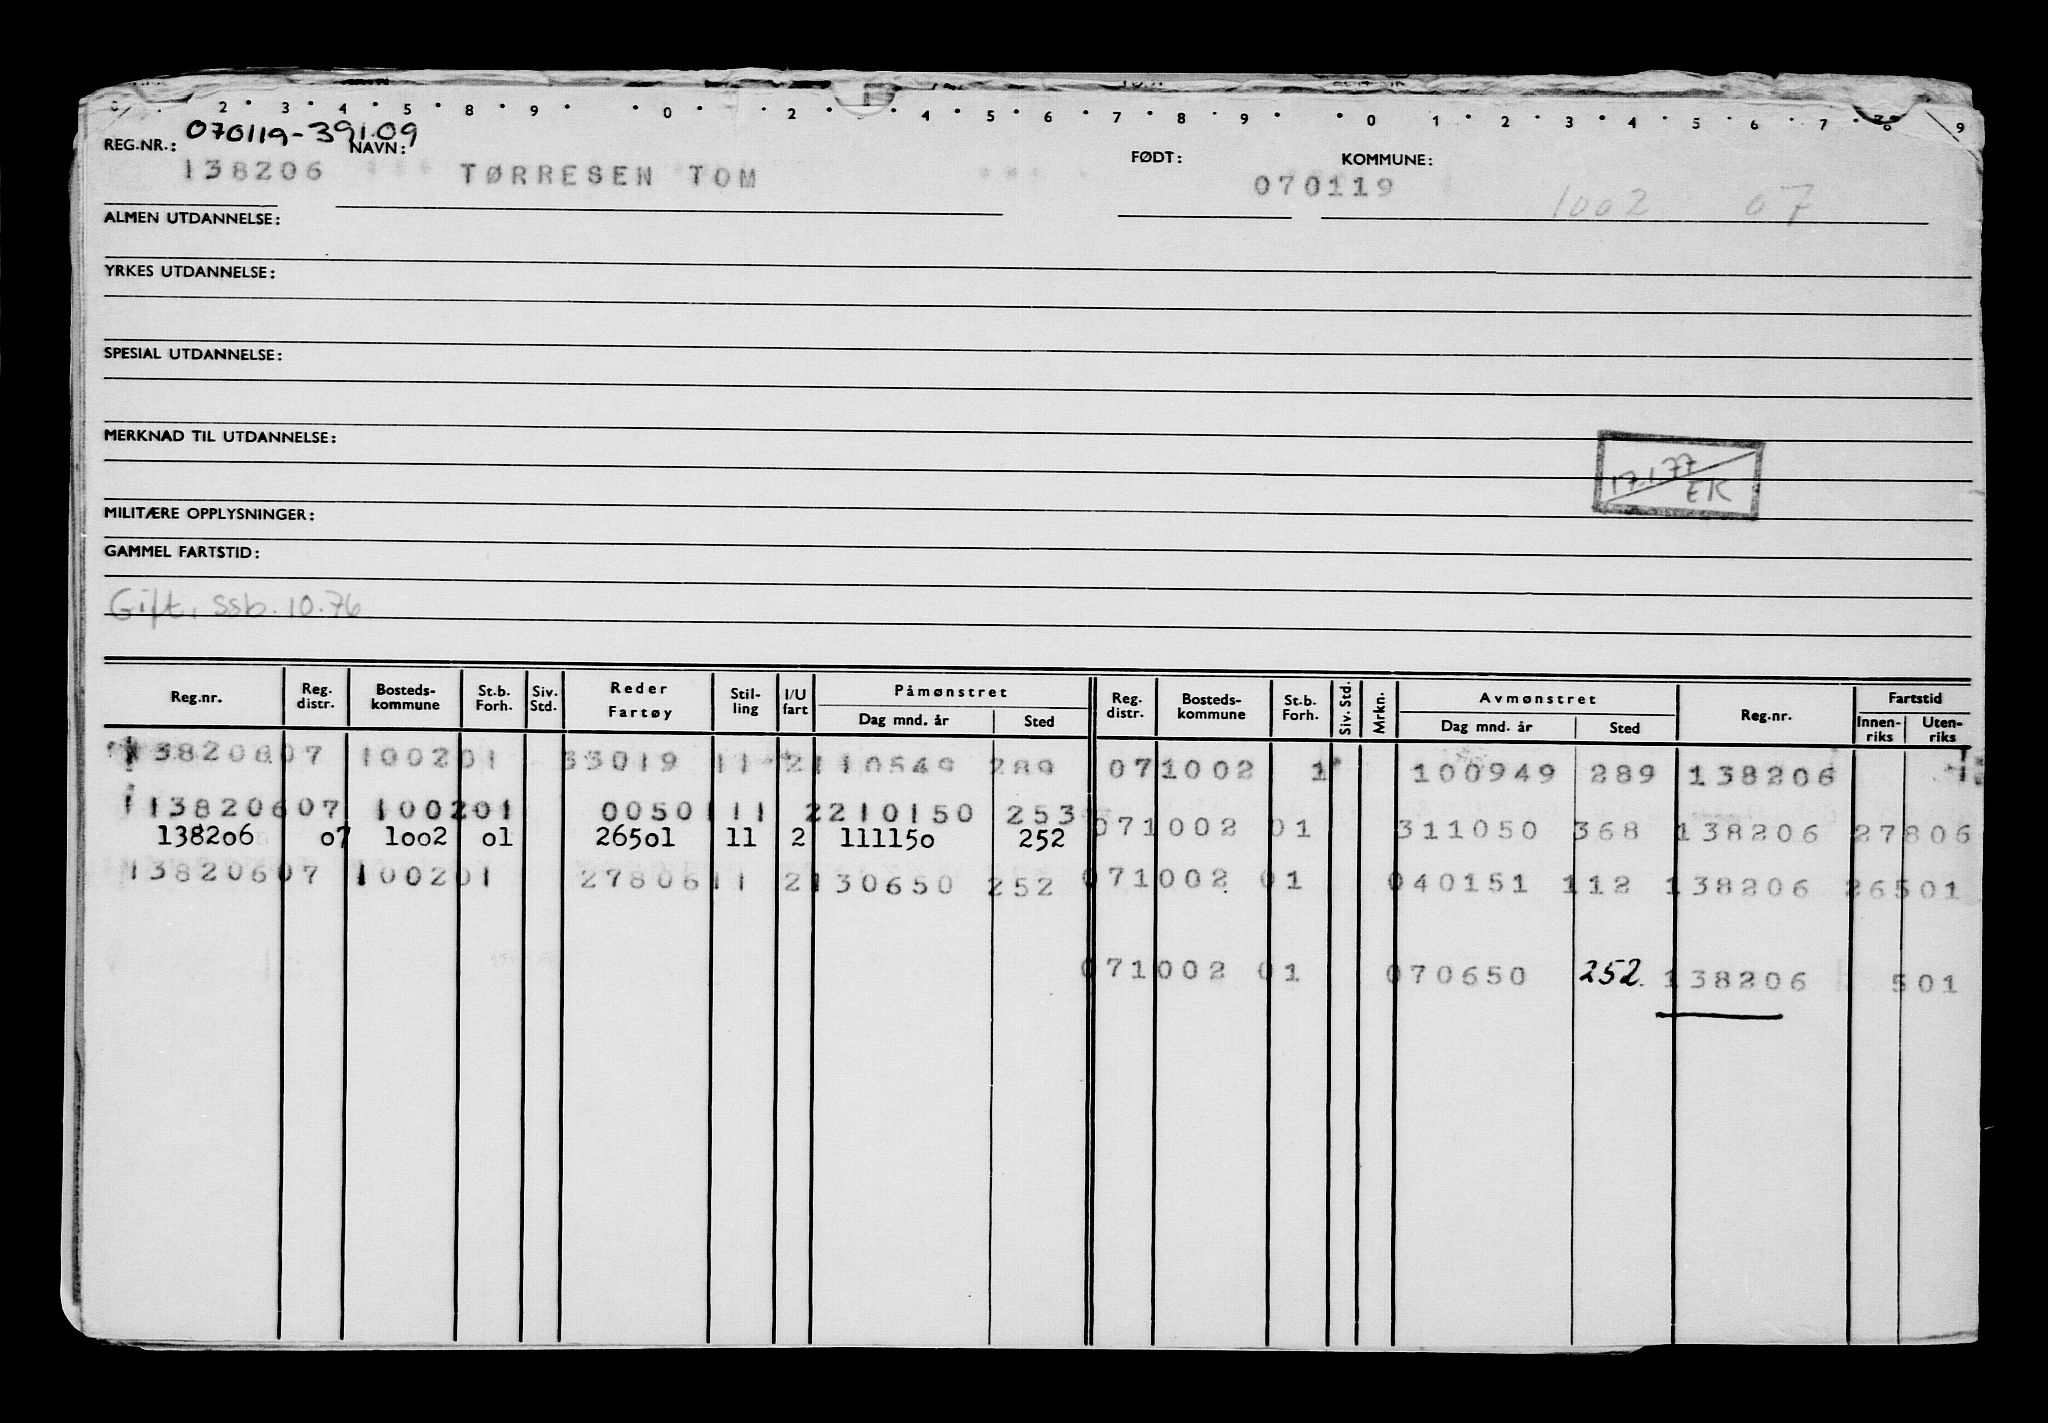 2 3 4 5 8 9 0 2 4 5 6 7 8 9 0 1 2 3 4 5 6 7 8 9
070119-39109
REG.NR.: NAVN: FØDT: KOMMUNE:
138206 TØRRESEN TOM 070119 1002 07
ALMEN UTDANNELSE:
YRKES UTDANNELSE:
SPESIAL UTDANNELSE:
MERKNAD TIL UTDANNELSE:
17.1.77
EK
MILITÆRE OPPLYSNINGER:
GAMMEL FARTSTID:
Gift. ssb. 10.76
Reg.nr. Reg. distr. Bosteds-kommune St.b. Forh. Siv. Std. Reder Fartøy Stil-ling I/U fart Påmønstret Dag mnd. år Sted Reg. distr. Bosteds-kommune St.b. Forh. Siv. Std. Mrkn. Avmønstret Dag mnd. år Sted Reg.nr. Fartstid Innen-riks Uten-riks
13820607 100201 33019 11 2110549 289 071002 1 100949 289 138206
13820607 100201 0050111 2210150 253
138206 07 1002 01 26501 11 2 111150 252
071002 01 311050 368 138206 27806
13820607 100201 2780611 2130650 252
071002 01 040151 112 138206 26501
071002 01 070650 252. 138206 501